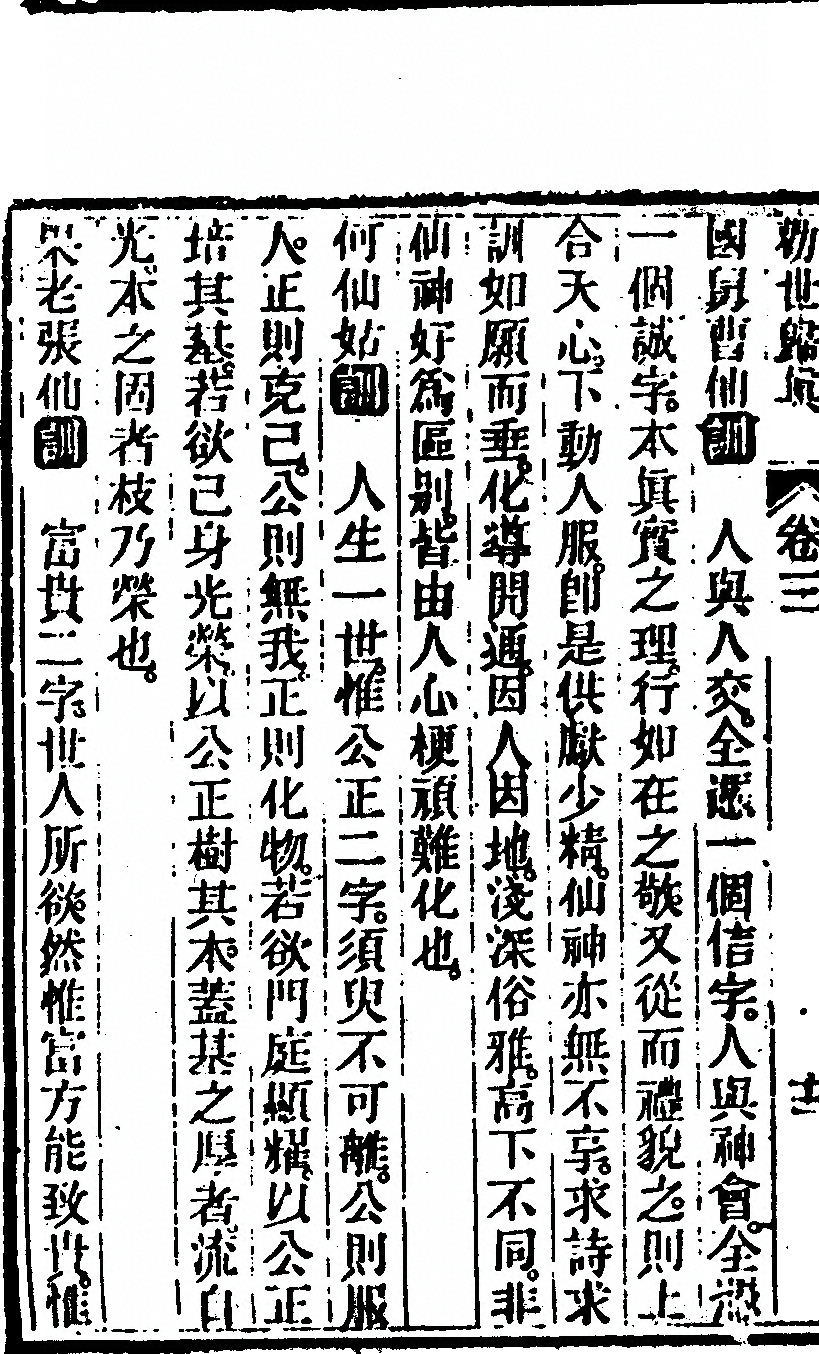 勸世歸真 卷三 十二
國舅曹仙訓 人與人交。全憑一個信字。人與神會。全憑
一個誠字。本眞實之理。行如在之敬。又從而禮貌之。則上
合天心。下動人服。卽是供獻少精。仙神亦無不享。求詩求
訓如願而垂。化導開通。因人因地。淺深俗雅。高下不同。非
仙神好爲區别。皆由人心梗頑難化也。
何仙姑訓 人生一世。惟公正二字。須臾不可離。公則服
人。正則克己。公則無我。正則化物。若欲門庭顯耀。以公正
培其基。若欲己身光榮。以公正樹其本。蓋基之厚者。流自
光。本之固者。枝乃榮也。
果老張仙訓 富貴二字。世人所欲。然惟富方能致貴。惟